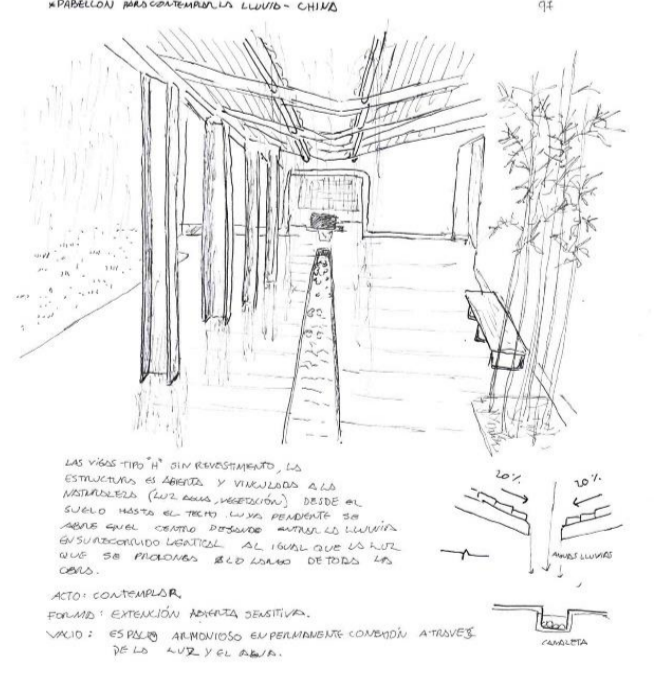 *PABELLON PARA CONTEMPLAR LA LLUVIA - CHINA
97
LAS VIGAS TIPO "H" SIN REVESTIMIENTO, LA
ESTRUCTURA ES ABIERTA Y VINCULADA A LA
NATURALEZA (LUZ AGUA, VEGETACIÓN) DESDE EL
SUELO HASTA EL TECHO, CUYA PENDIENTE SE
ABRE EN EL CENTRO DEJANDO ENTRAR LA LLUVIA
EN SU RECORRIDO VERTICAL AL IGUAL QUE LA LUZ
QUE SE PROLONGA A LO LARGO DE TODA LA
OBRA.
ACTO: CONTEMPLAR.
FORMA: EXTENCIÓN ABIERTA SENSITIVA.
VACIO: ESPACIO ARMONIOSO EN PERMANENTE CONEXIÓN A TRAVES
DE LA LUZ Y EL AGUA.
20%
20%
AGUAS LLUVIAS
CANALETA